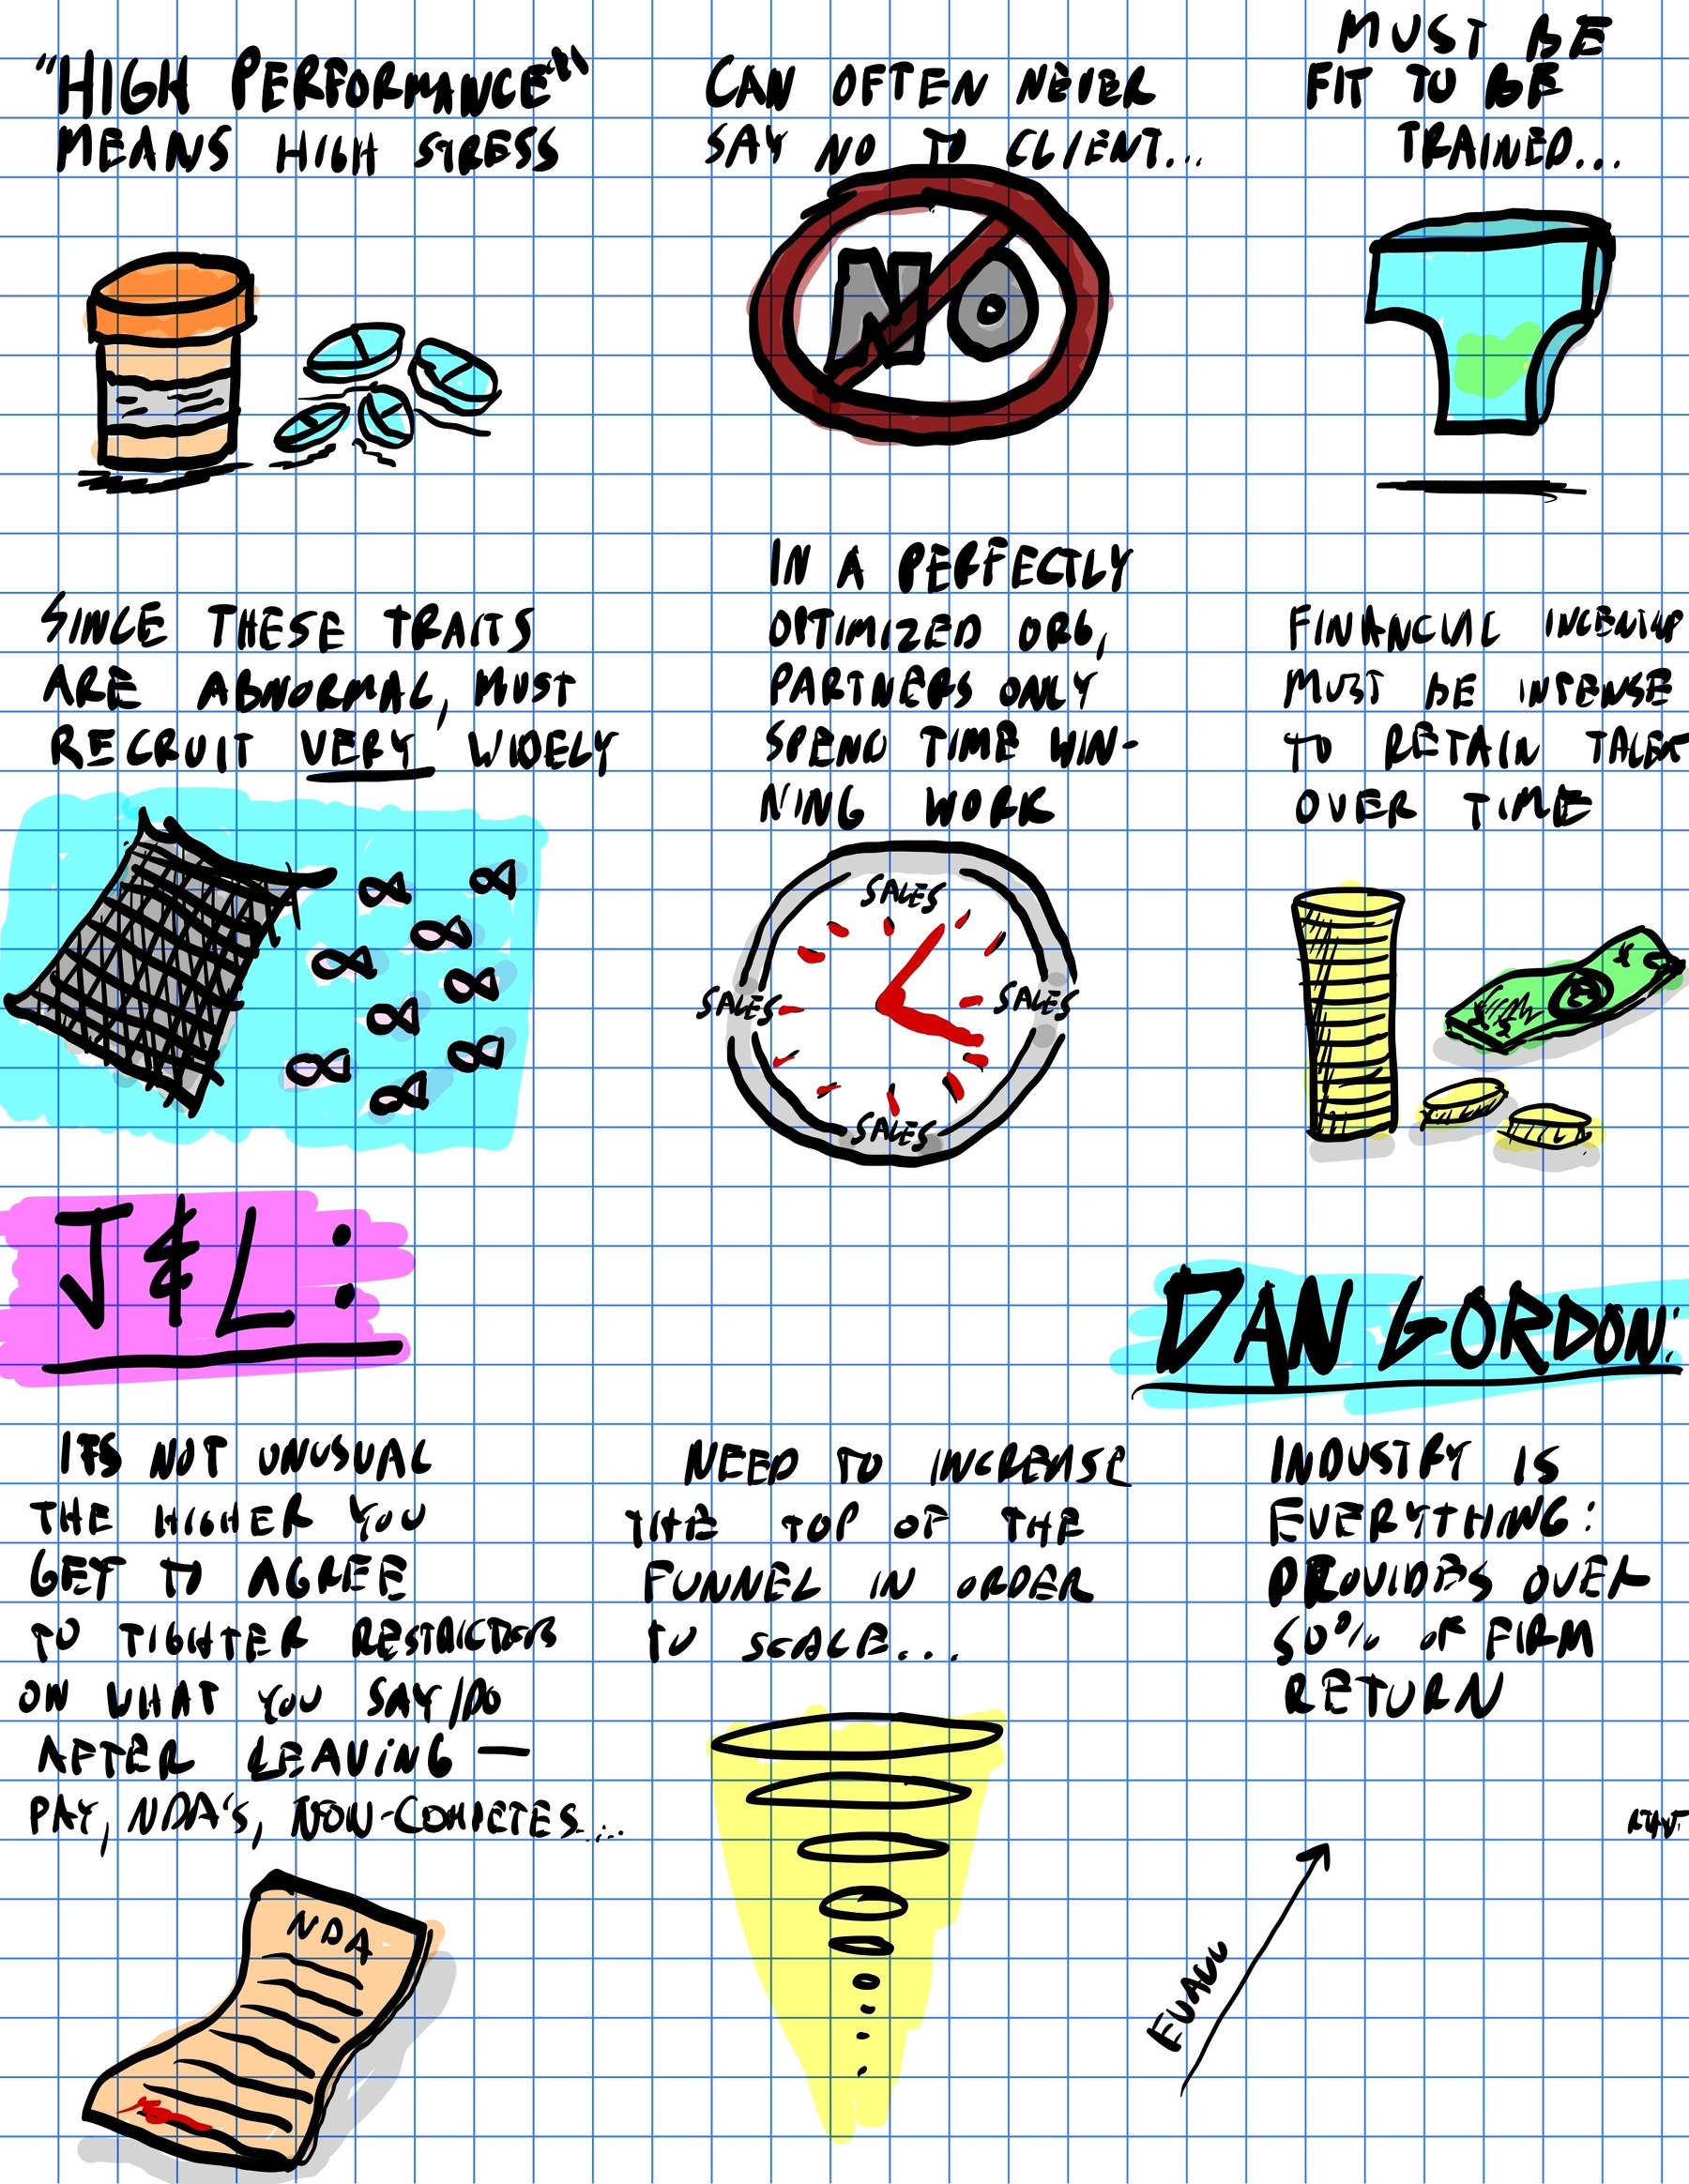 "HIGH PERFORMANCE"
MEANS HIGH STRESS
CAN OFTEN NEVER
SAY NO TO CLIENT...
NO
MUST BE
FIT TO BE
TRAINED...
SINCE THESE TRAITS
ARE ABNORMAL, MUST
RECRUIT VERY WIDELY
IN A PERFECTLY
OPTIMIZED ORG,
PARTNERS ONLY
SPEND TIME WIN-
NING WORK
SALES
SALES
SALES
SALES
FINANCIAL
MUST BE INTENSE
TO RETAIN TALENT
OVER TIME
J&L:
DAN GORDON:
ITS NOT UNUSUAL
THE HIGHER YOU
GET TO AGREE
TO TIGHTER RESTRICTIONS
ON WHAT YOU SAY/DO
AFTER LEAVING —
PAY, NDA'S, NON-COMPETES...
NDA
NEED TO INCREASE
THE TOP OF THE
FUNNEL IN ORDER
TO SCALE...
INDUSTRY IS
EVERYTHING:
PROVIDES OVER
OF FIRM
RETURN